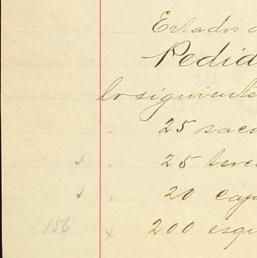 Estados
Pedid
lo siguiente
25 saco
25 terc
20 caja
156 x 200 esqu